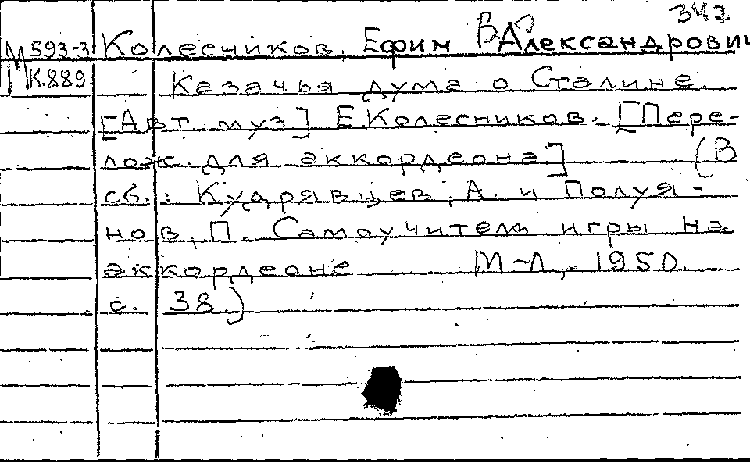 342
М 593-3 Колесников, Ефим Александрович
К.889 Казачья дума о Сталине.
[Авт. муз.] Е.Колесников. [Пере-
лож. для аккордеона] (В
сб.: Кудрявцев, А. и Полуя-
нов, П. Самоучитель игры на
аккордеоне М-Л, 1950.
с. 38)